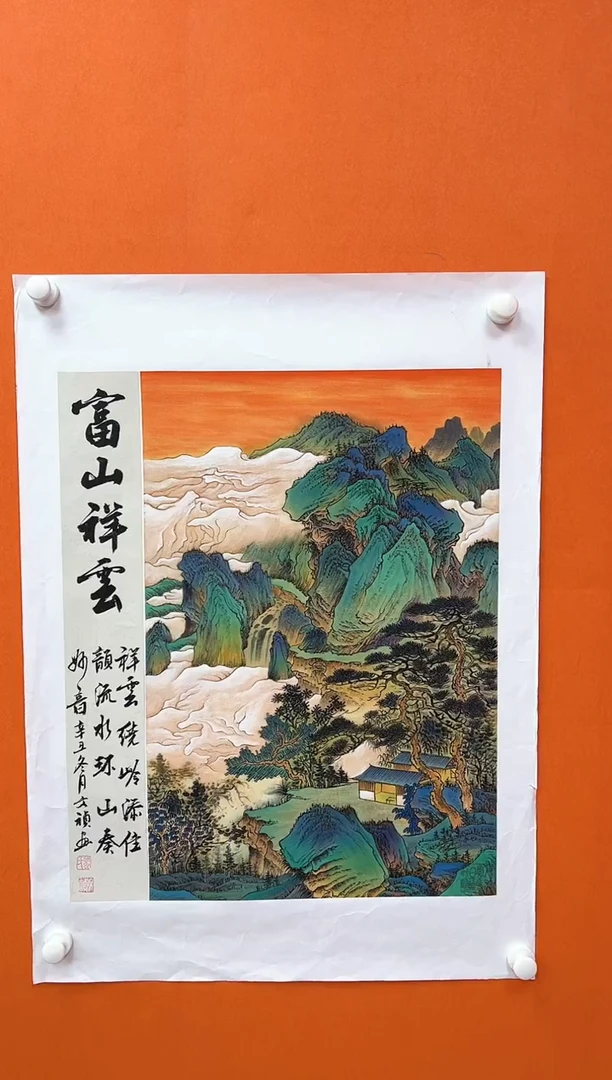 富山祥雲
祥雲绕岭添佳
韻流水环山奏
妙音 辛丑冬月文祯画